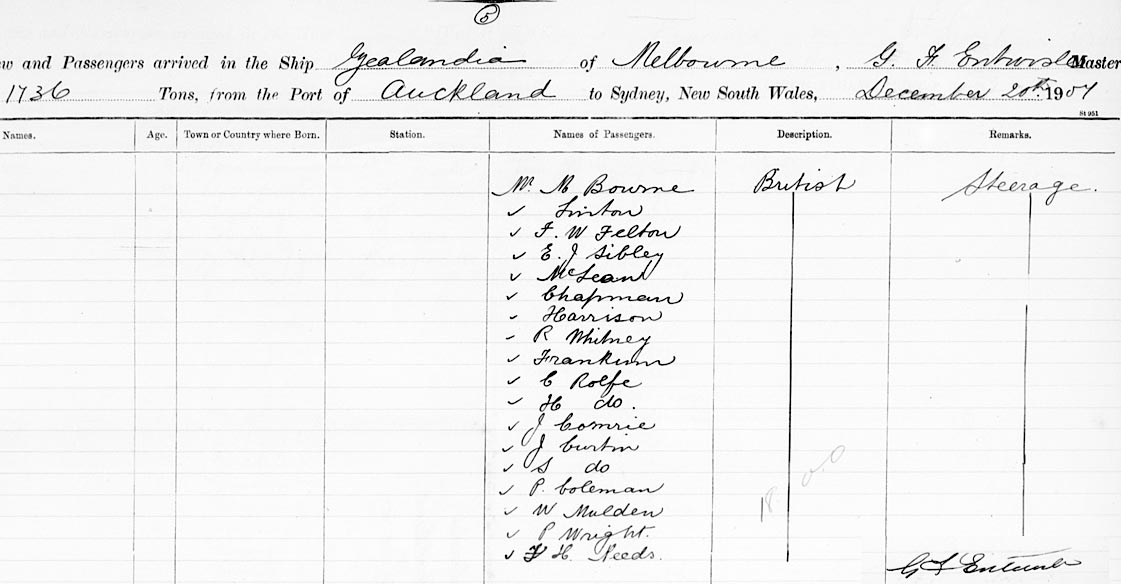 5
ew and Passengers arrived in the Ship Zealandia of Melbourne, G. F. Entwisle Master
1736 Tons, from the Port of Auckland to Sydney, New South Wales, December 20th 1907
St 951
Names. Age. Town or Country where Born. Station. Names of Passengers. Description. Remarks.
Mr. M Bourne British Steerage.
✓ Linton
✓ F. W Felton
✓ E. J Sibley
✓ McLean
✓ Chapman
✓ Harrison
✓ R Whitney
✓ Frankum
✓ C Rolfe
✓ H do.
✓ J Comrie
✓ J Curtin
✓ S do
✓ P. Coleman
✓ W Mulden
✓ P Wright.
✓ H. Needs.
18. 0.0
G F Entwisle